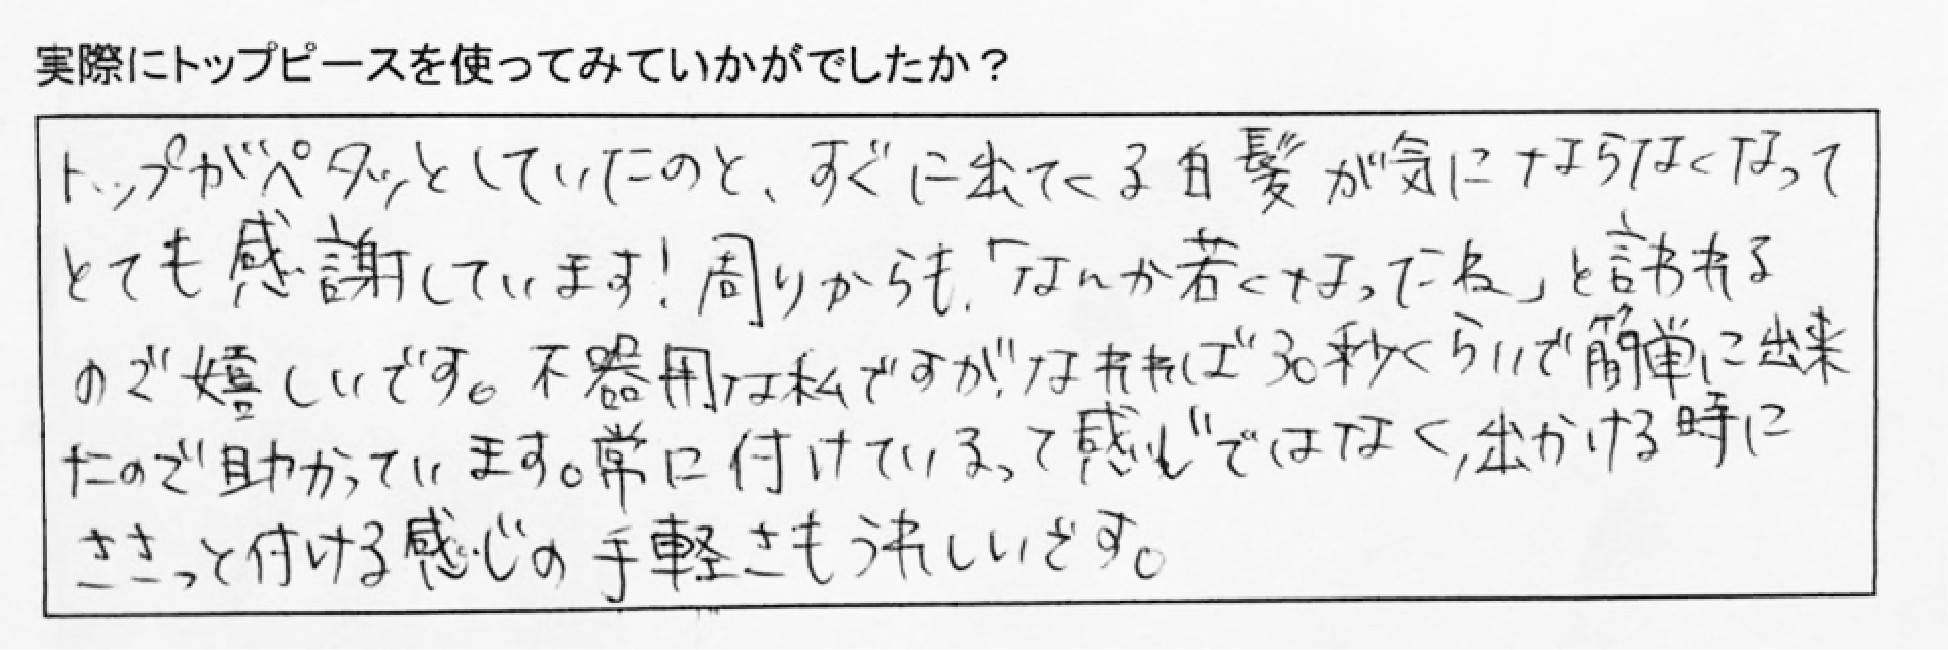 実際にトップピースを使ってみていかがでしたか？
トップがペタッとしていたのと、すぐに出てくる白髪が気にならなくなって
とても感謝しています！周りからも、「なんか若くなったね」と言われる
ので嬉しいです。不器用な私ですが、なれれば30秒くらいで簡単に出来
たので助かっています。常に付けているって感じではなく、出かける時に
ささっと付ける感じの手軽さもうれしいです。